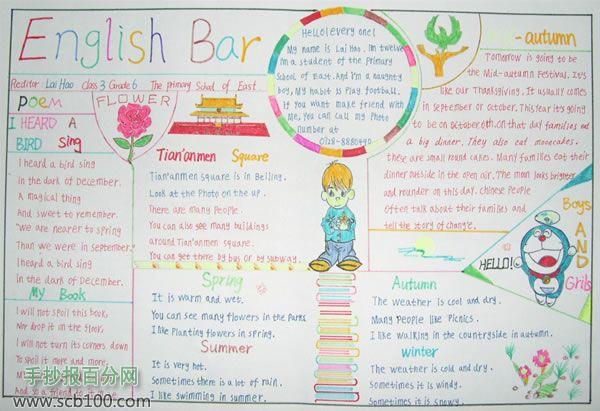 English Bar
Reditor Lai Hao Class 3 Grade 6 The primary School of East
Hello! every one!
My name is Lai Hao. Im twelve
I'm a student of the Primary
School of East. And I'm a naughty
boy. My habit is Play football.
If you want make friend with
Me, You can call my Photo
number at
0128-8880490
-autumn
Tomorrow is going to be
the Mid-autumn Festival. It's
like our Thanksgiving. It usually comes
in September or October. This Year it's going
to be on October 6th. on that day families eat
a big dinner. They also eat mooncakes.
these are small round cakes. Many families eat their
dinner outside in the open air. The moon looks brighter
and rounder on this day. Chinese People
Often talk about their families and
tell the story of change.
Poem
I HEARD A
BIRD Sing
I heard a bird sing
In the dark of December.
A magical thing
And sweet to remember.
"We are nearer to spring
Than we were in september."
I heard a bird sing
In the dark of December.
My Book
I will not spoil this book
Nor drop it on the floor
I will not turn its corners down
To spoil it more and more.
FLOWER
Tian'anmen Square
Tian'anmen square is in Beijing.
Look at the Photo on the up.
There are many People.
You can also see many buildings
around Tian'anmen square.
You can get there by bus or by subway.
Spring
It is warm and wet.
You can see many flowers in the Parks
I like Planting flowers in spring.
Summer
It is very hot.
Sometimes there is a lot of rain.
I like swimming in summer.
HELLO!
Boys
AND
Grils
Autumn
The weather is cool and dry.
Many People like Picnics.
I like walking in the countryside in autumn.
winter
The weather is cold and dry.
Sometimes it is windy.
Sometimes it is snowy.
手抄报百分网
www.scb100.com